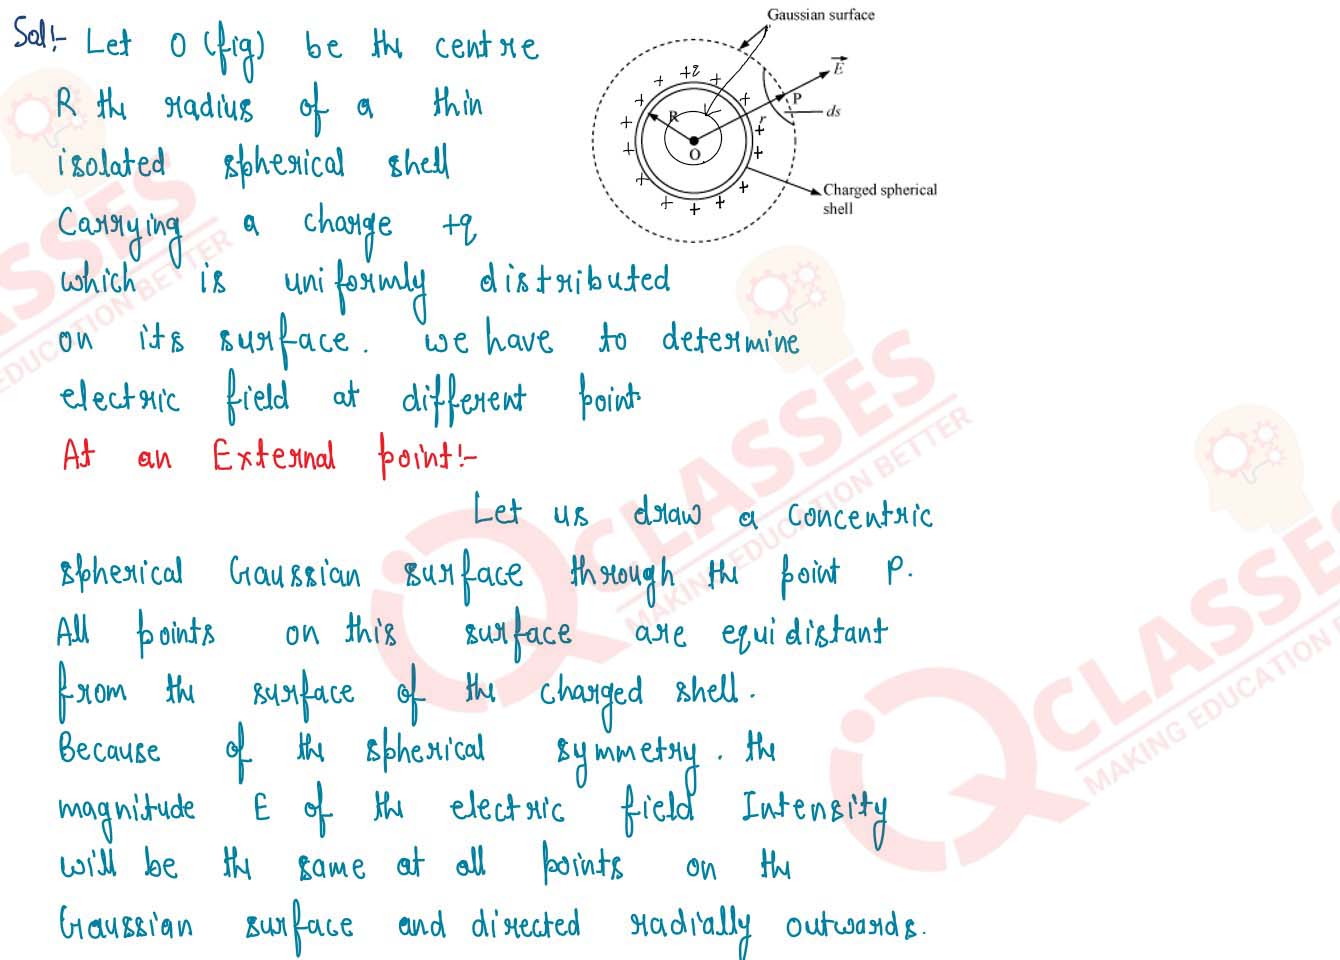 Sol:- Let O (fig) be the centre
R the radius of a thin
isolated spherical shell
Carrying a charge +q
which is uniformly distributed
on its surface. we have to determine
electric field at different point.
At an External point:-
Let us draw a concentric
spherical Gaussian surface through the point P.
All points on this surface are equidistant
from the surface of the charged shell.
Because of the spherical symmetry. the
magnitude E of the electric field Intensity
will be the same at all points on the
Gaussian surface and directed radially outwards.
Gaussian surface
+q
E
P
ds
R
r
O
Charged spherical
shell
IQ CLASSES
MAKING EDUCATION BETTER
IQ CLASSES
MAKING EDUCATION BETTER
ASSES
EDUCATION BETTER